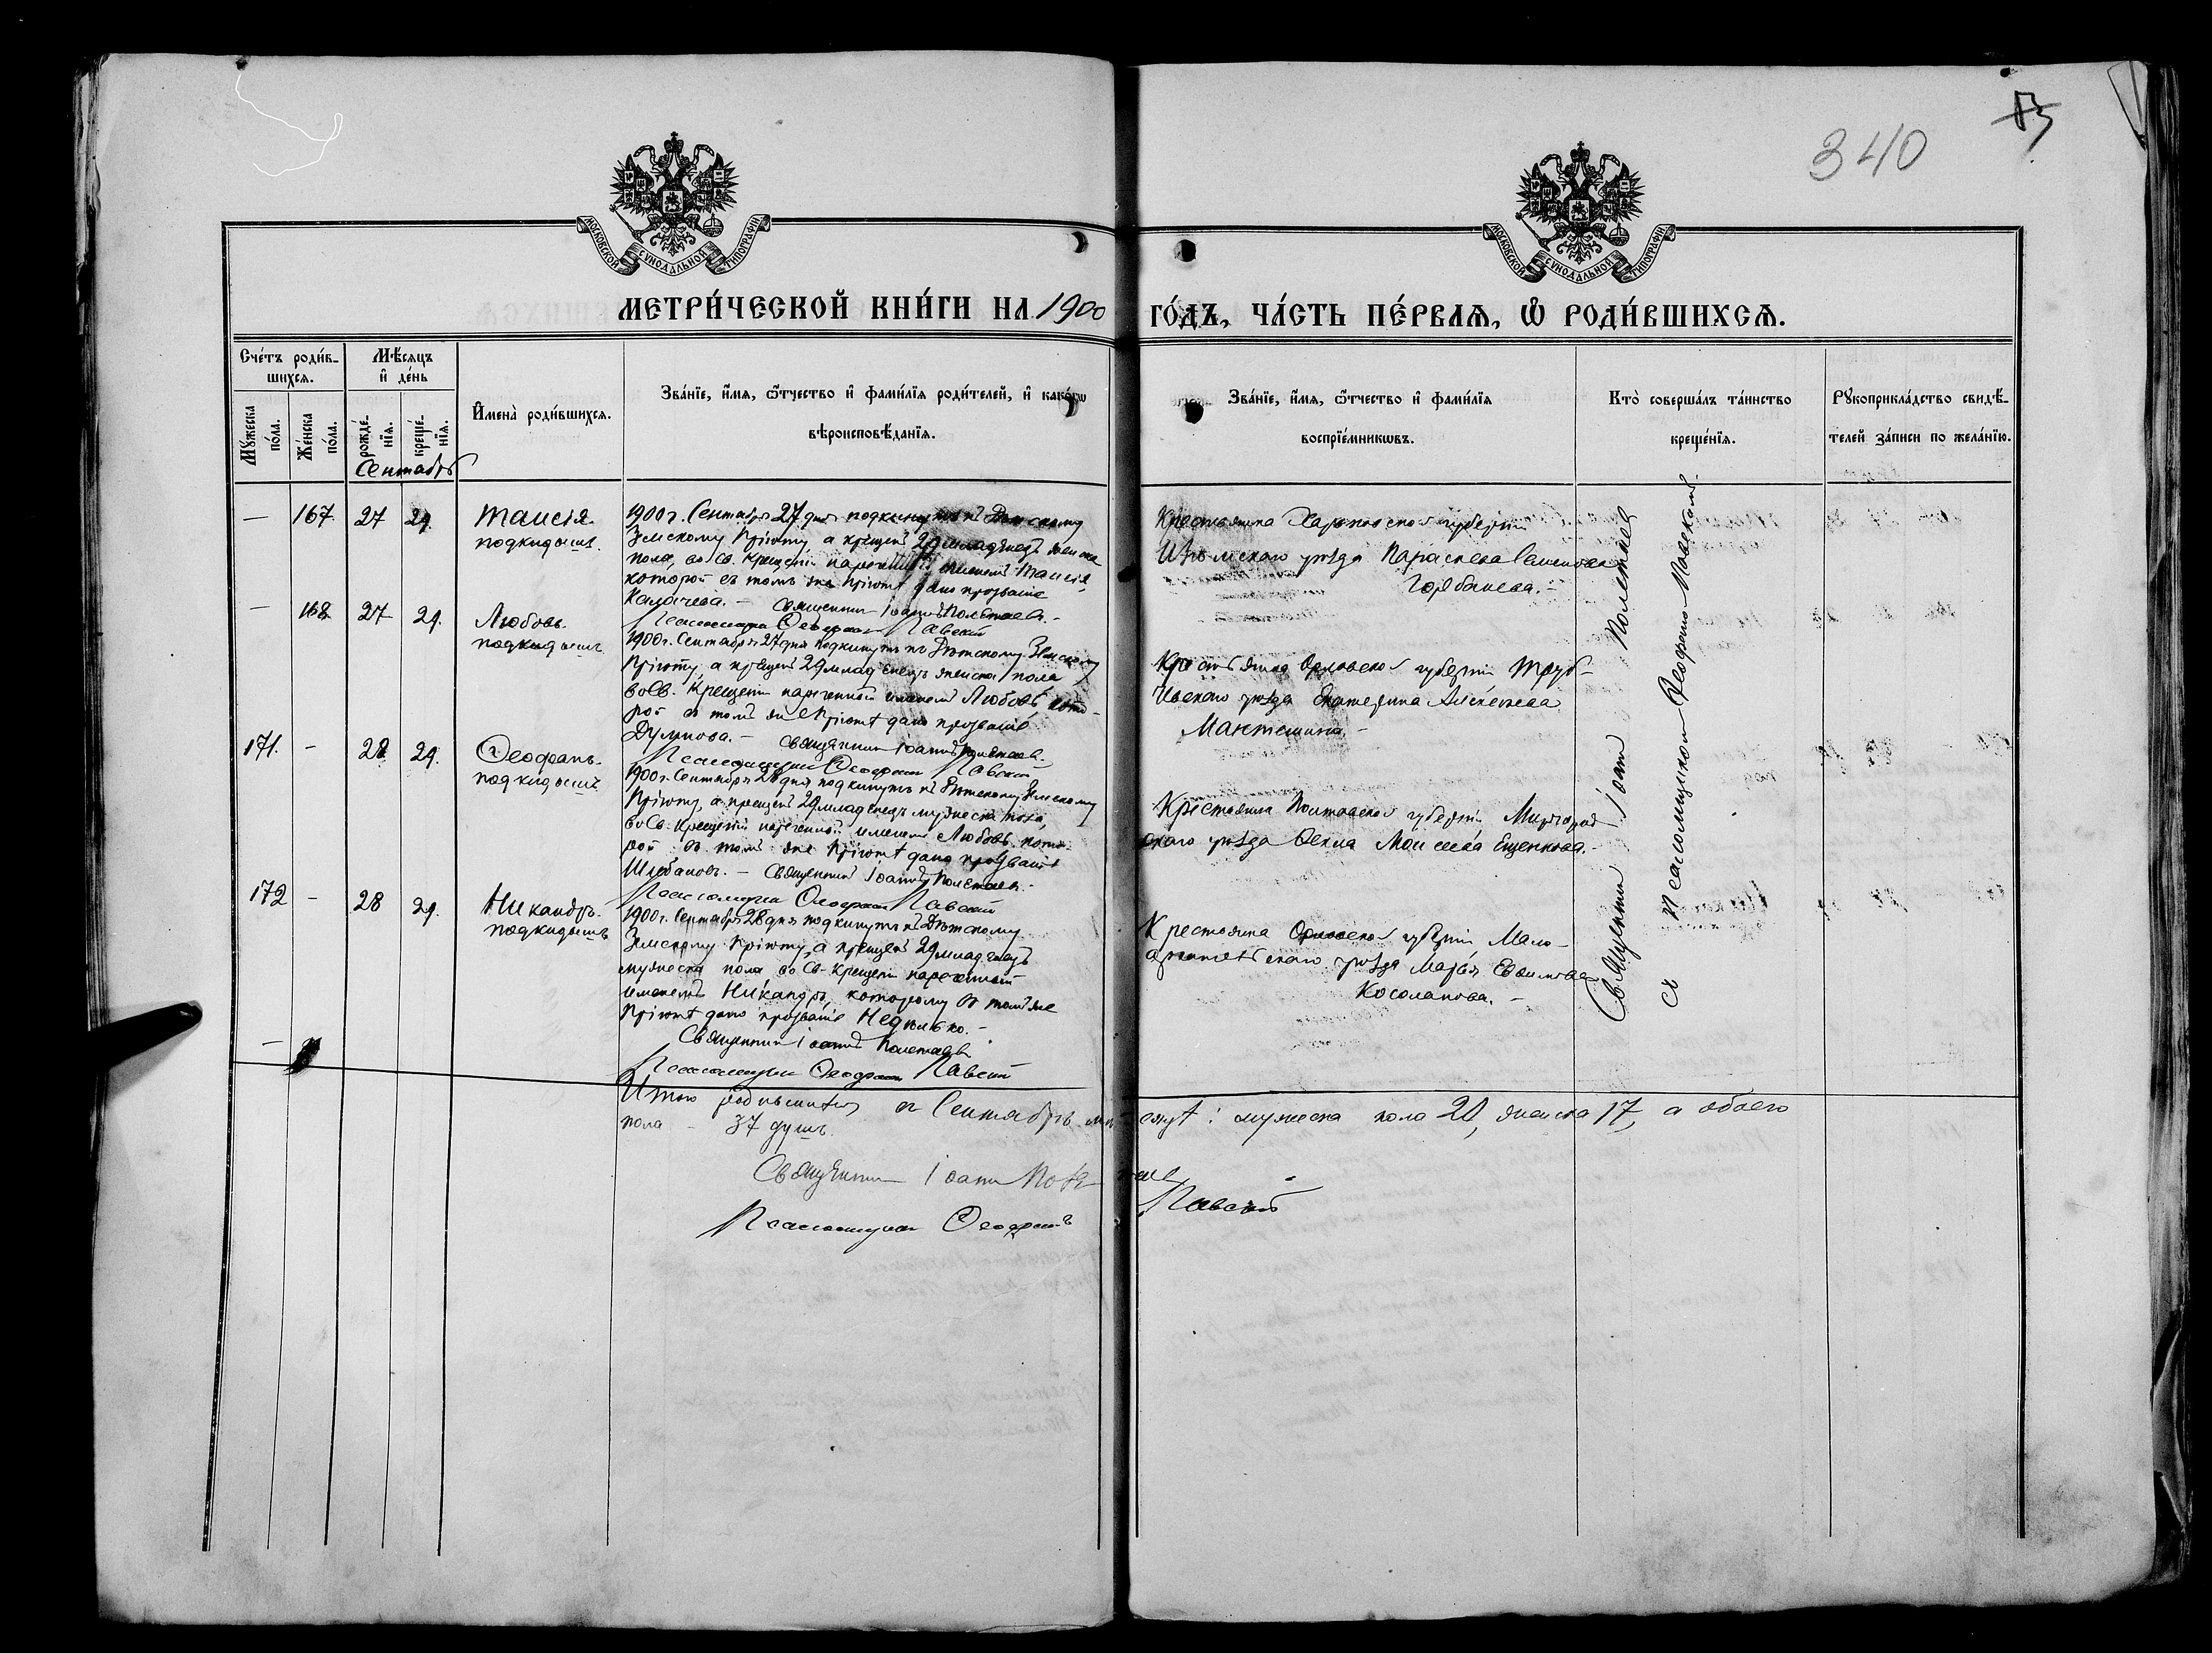 340
МОСКОВСКОЙ СУНОДАЛЬНОЙ ТИПОГРАФІИ
МОСКОВСКОЙ СУНОДАЛЬНОЙ ТИПОГРАФІИ
МЕТРИ́ЧЕСКОЙ КНИ́ГИ НА 1900 ГО́ДЪ, ЧА́СТЬ ПЕ́РВАѦ, Ѡ҆ РОДИ́ВШИХСѦ.
Сче́тъ роди́в-
шихсѧ.
Мꙋ́жеска по́ла.
Же́нска по́ла.
Мѣ́сѧцъ
и҆ де́нь
рожде́-
нїѧ.
креще́-
нїѧ.
Сентябрь
И҆мена̀ роди́вшихсѧ.
Зва́нїе, и҆́мѧ, ѻ҆́тчество и҆ фами́лїѧ роди́телей, и҆ како́гѡ
вѣроисповѣ́данїѧ.
Зва́нїе, и҆́мѧ, ѻ҆́тчество и҆ фами́лїѧ
воспрїе́мникѡвъ.
Кто̀ соверша́лъ та́инство
креще́нїѧ.
Рꙋкоприкла́дство свидѣ́-
телей за́писи по жела́нїю.
— 167. 27 29. Таисія
подкидышъ.
1900 г. Сентября 27 дня подкинутъ къ Дѣтскому
Земскому Пріюту, а крещенъ 29 младенецъ женска
пола, во Св. Крещеніи нареченный именемъ Таисія,
которой въ томъ же Пріютѣ дано прозваніе
Казачева. — Священникъ Іоаннъ Полетаевъ. —
Псаломщикъ Ѳеофанъ Павскій
Крестьянка Харьковской губерніи
Изюмскаго уѣзда Параскева Семенова
Горбанева. —
— 168. 27 29. Любовь.
подкидышъ
1900 г. Сентября 27 дня подкинутъ къ Дѣтскому Земскому
Пріюту, а крещенъ 29 младенецъ женска пола
во Св. Крещеніи нареченный именемъ Любовь, кото-
рой въ томъ же Пріютѣ дано прозваніе
Думнова. — Священникъ Іоаннъ Полетаевъ.
Псаломщикъ Ѳеофанъ Павскій
Крестьянка Орловской губерніи Труб-
чевскаго уѣзда Екатерина Алексѣева
171. — 28 29. Ѳеофанъ.
подкидышъ
1900 г. Сентября 28 дня подкинутъ къ Дѣтскому Земскому
Пріюту, а крещенъ 29 младенецъ мужеска пола,
во Св. Крещеніи нареченный именемъ Любовь, кото-
рой въ томъ же Пріютѣ дано прозваніе
Шибановъ. — Священникъ Іоаннъ Полетаевъ. —
Псаломщикъ Ѳеофанъ Павскій
Крестьянка Полтавской губерніи Миргород-
скаго уѣзда Ѳекла Моисеева Ещенкова.
172 — 28 29. Никандръ.
подкидышъ
1900 г. Сентября 28 дня подкинутъ къ Дѣтскому
Земскому Пріюту, а крещенъ 29 младенецъ
мужеска пола во Св. Крещеніи нареченный
именемъ Никандръ, которому въ томъ же
Пріютѣ дано прозваніе
Священникъ Іоаннъ Полетаевъ
Псаломщикъ Ѳеофанъ Павскій
Крестьянка Орловской губерніи Мало-
архангельскаго уѣзда Марья Евѳимова
Косолапова. —
Священникъ Іоаннъ Полетаевъ
съ псаломщикомъ Ѳеофаномъ Павскимъ.
Итого родившихся въ Сентябрѣ мѣсяцѣ: мужеска пола 20, женска 17, а обоего
пола — 37 душъ.
Священникъ Іоаннъ Полетаевъ
Псаломщикъ Ѳеофанъ Павскій